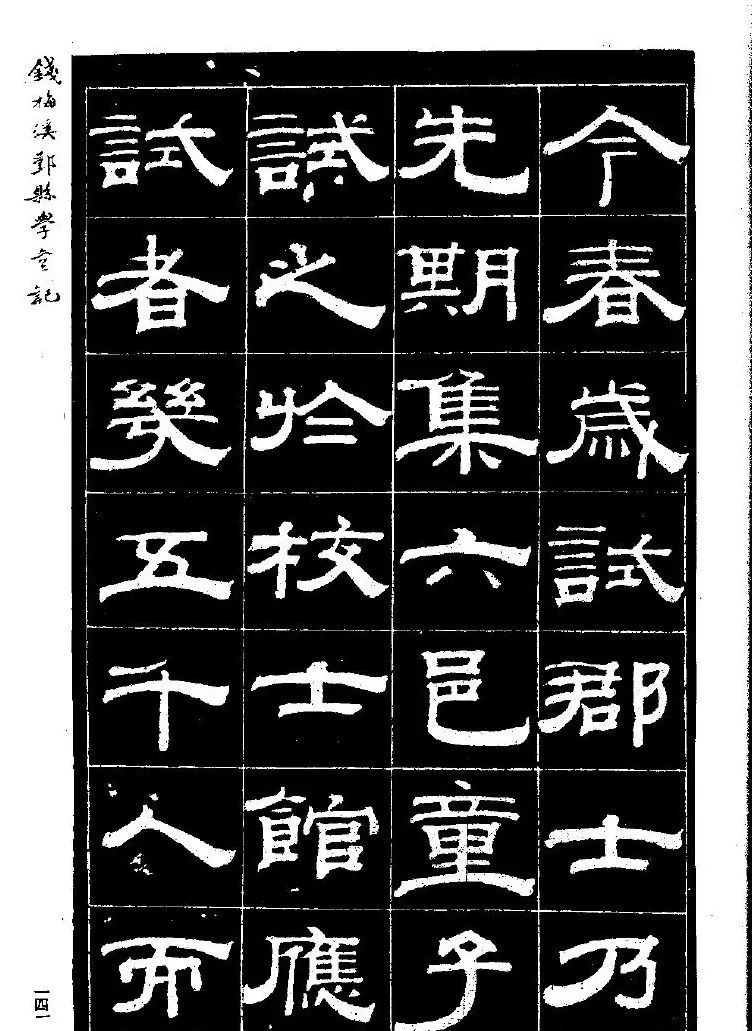 今春歲試郡士乃
先期集六邑童子
試之於校士館應
試者幾五千人而
錢梅溪鄞縣學重記
一四一